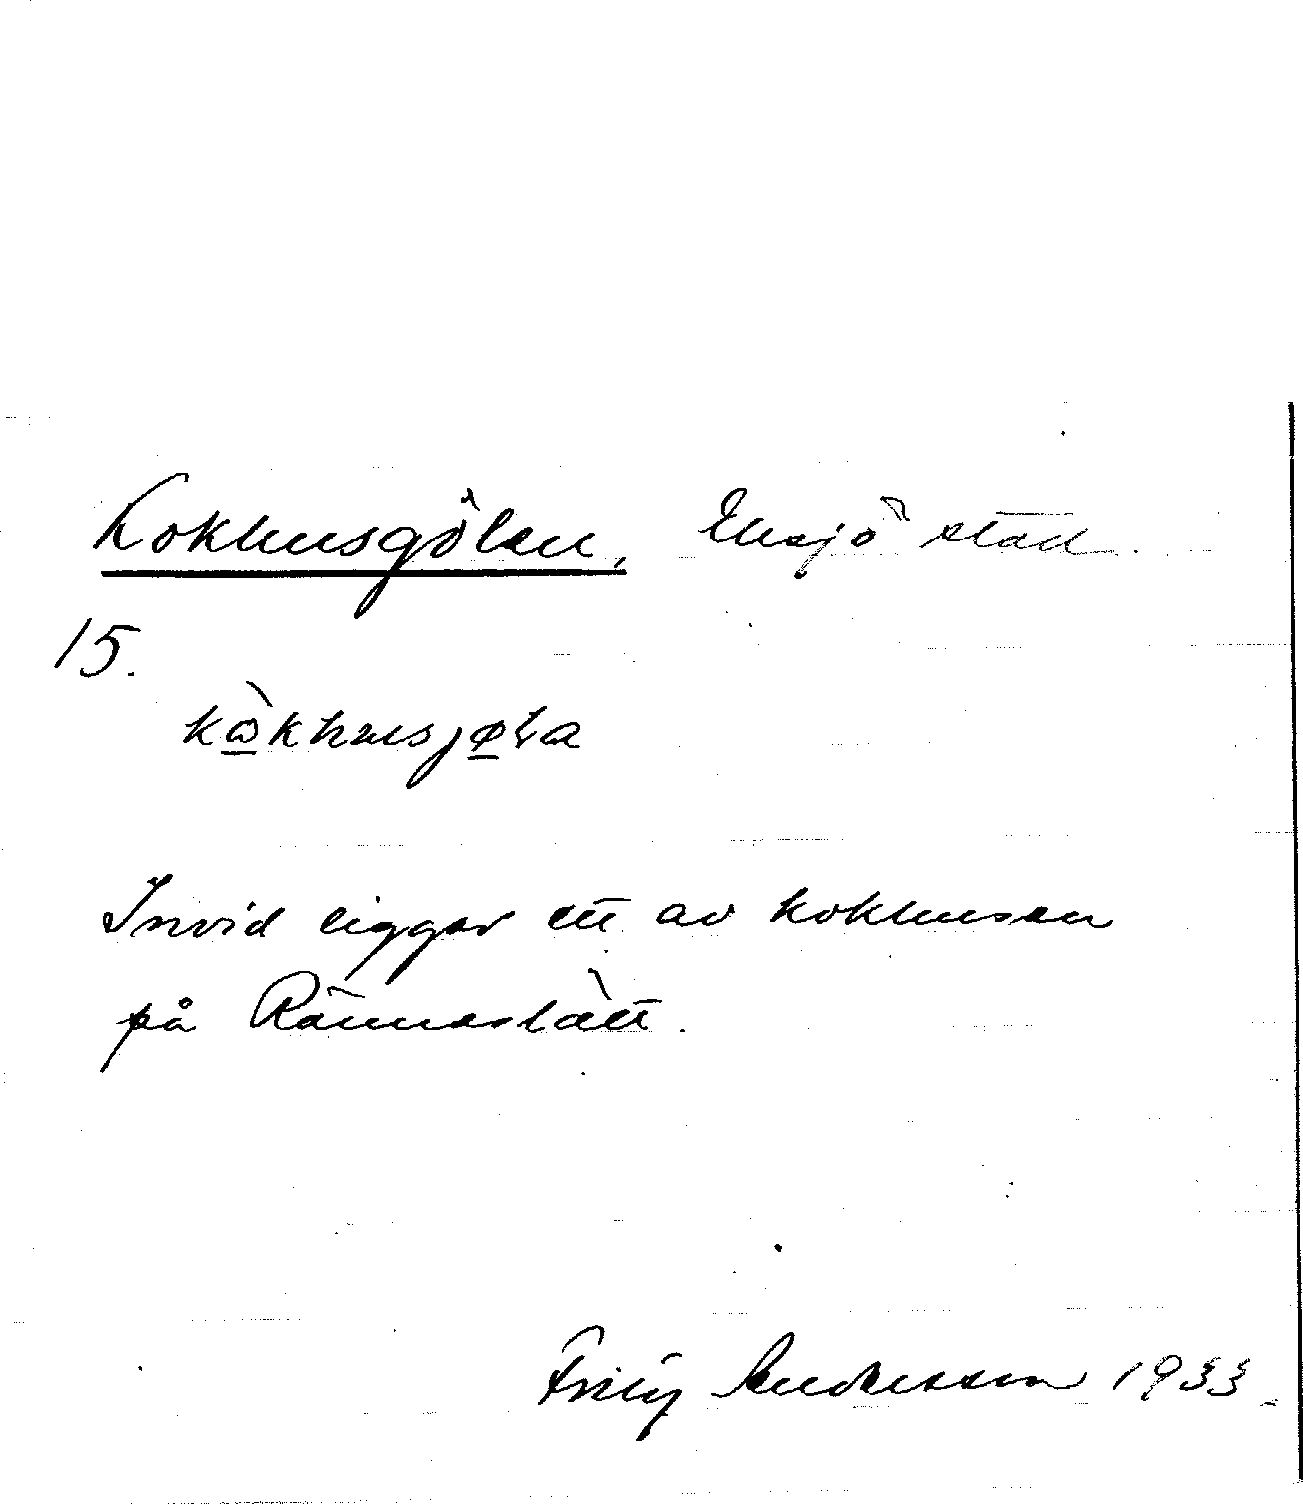 Kokhusgölen, Eksjö stad.
15.
kὼ̲khusjø̲ɽa
Invid ligger ett av kokhusen
på Ränneslätt.
Fritz Andersson 1933.